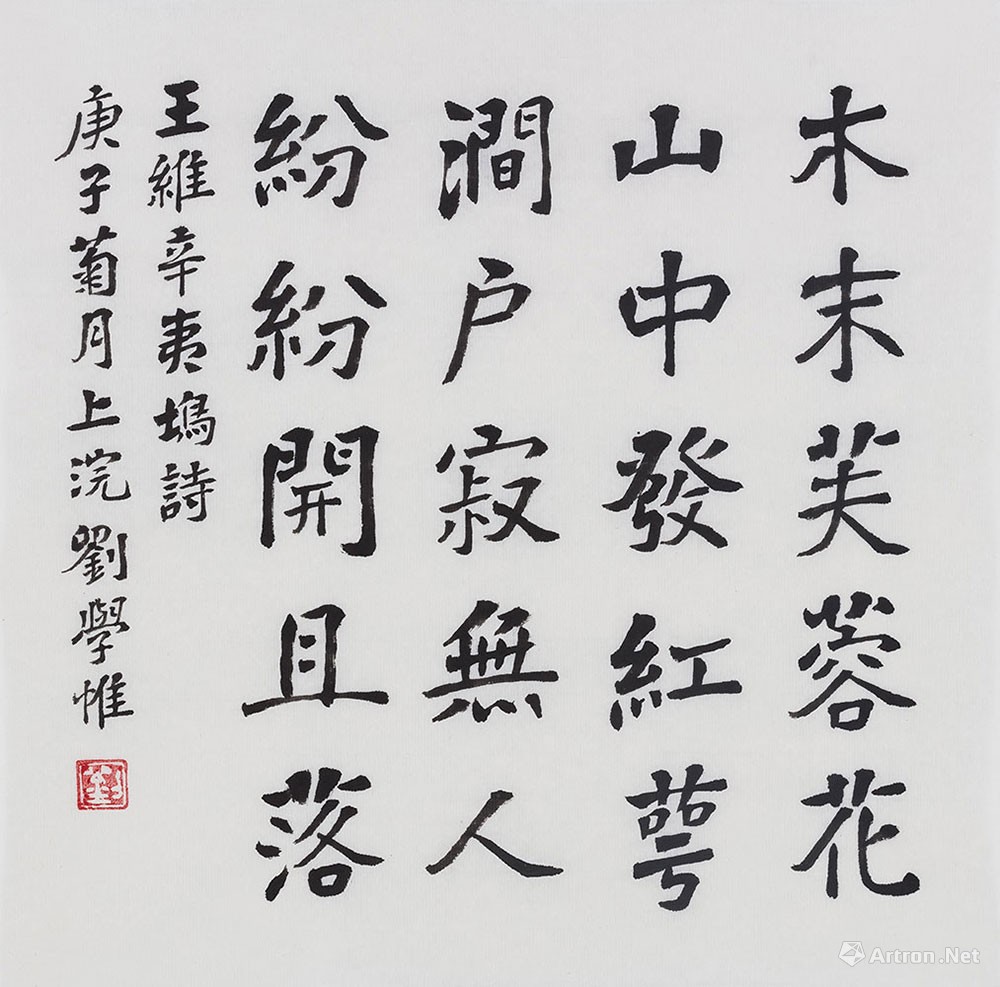 木末芙蓉花
山中發紅萼
澗户寂無人
紛紛開且落
王維辛夷塢詩
庚子菊月上浣劉學惟
劉
Artron.Net